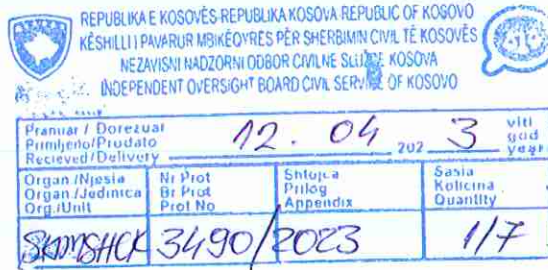 REPUBLIKA E KOSOVËS-REPUBLIKA KOSOVA-REPUBLIC OF KOSOVO
KËSHILLI I PAVARUR MBIKËQYRËS PËR SHËRBIMIN CIVIL TË KOSOVËS
NEZAVISNI NADZORNI ODBOR CIVILNE SLUŽBE KOSOVA
INDEPENDENT OVERSIGHT BOARD CIVIL SERVICE OF KOSOVO
Pranuar / Dorezuar
Primljeno/Prudato
Recieved/Delivery
12. 04 2023
viti
god
year
Organ./Njesia
Organ./Jedinica
Org./Unit
Nr Prot
Br Prot
Prot No
Shtojca
Prilog
Appendix
Sasia
Kolicina
Quantity
3490/2023
1/7